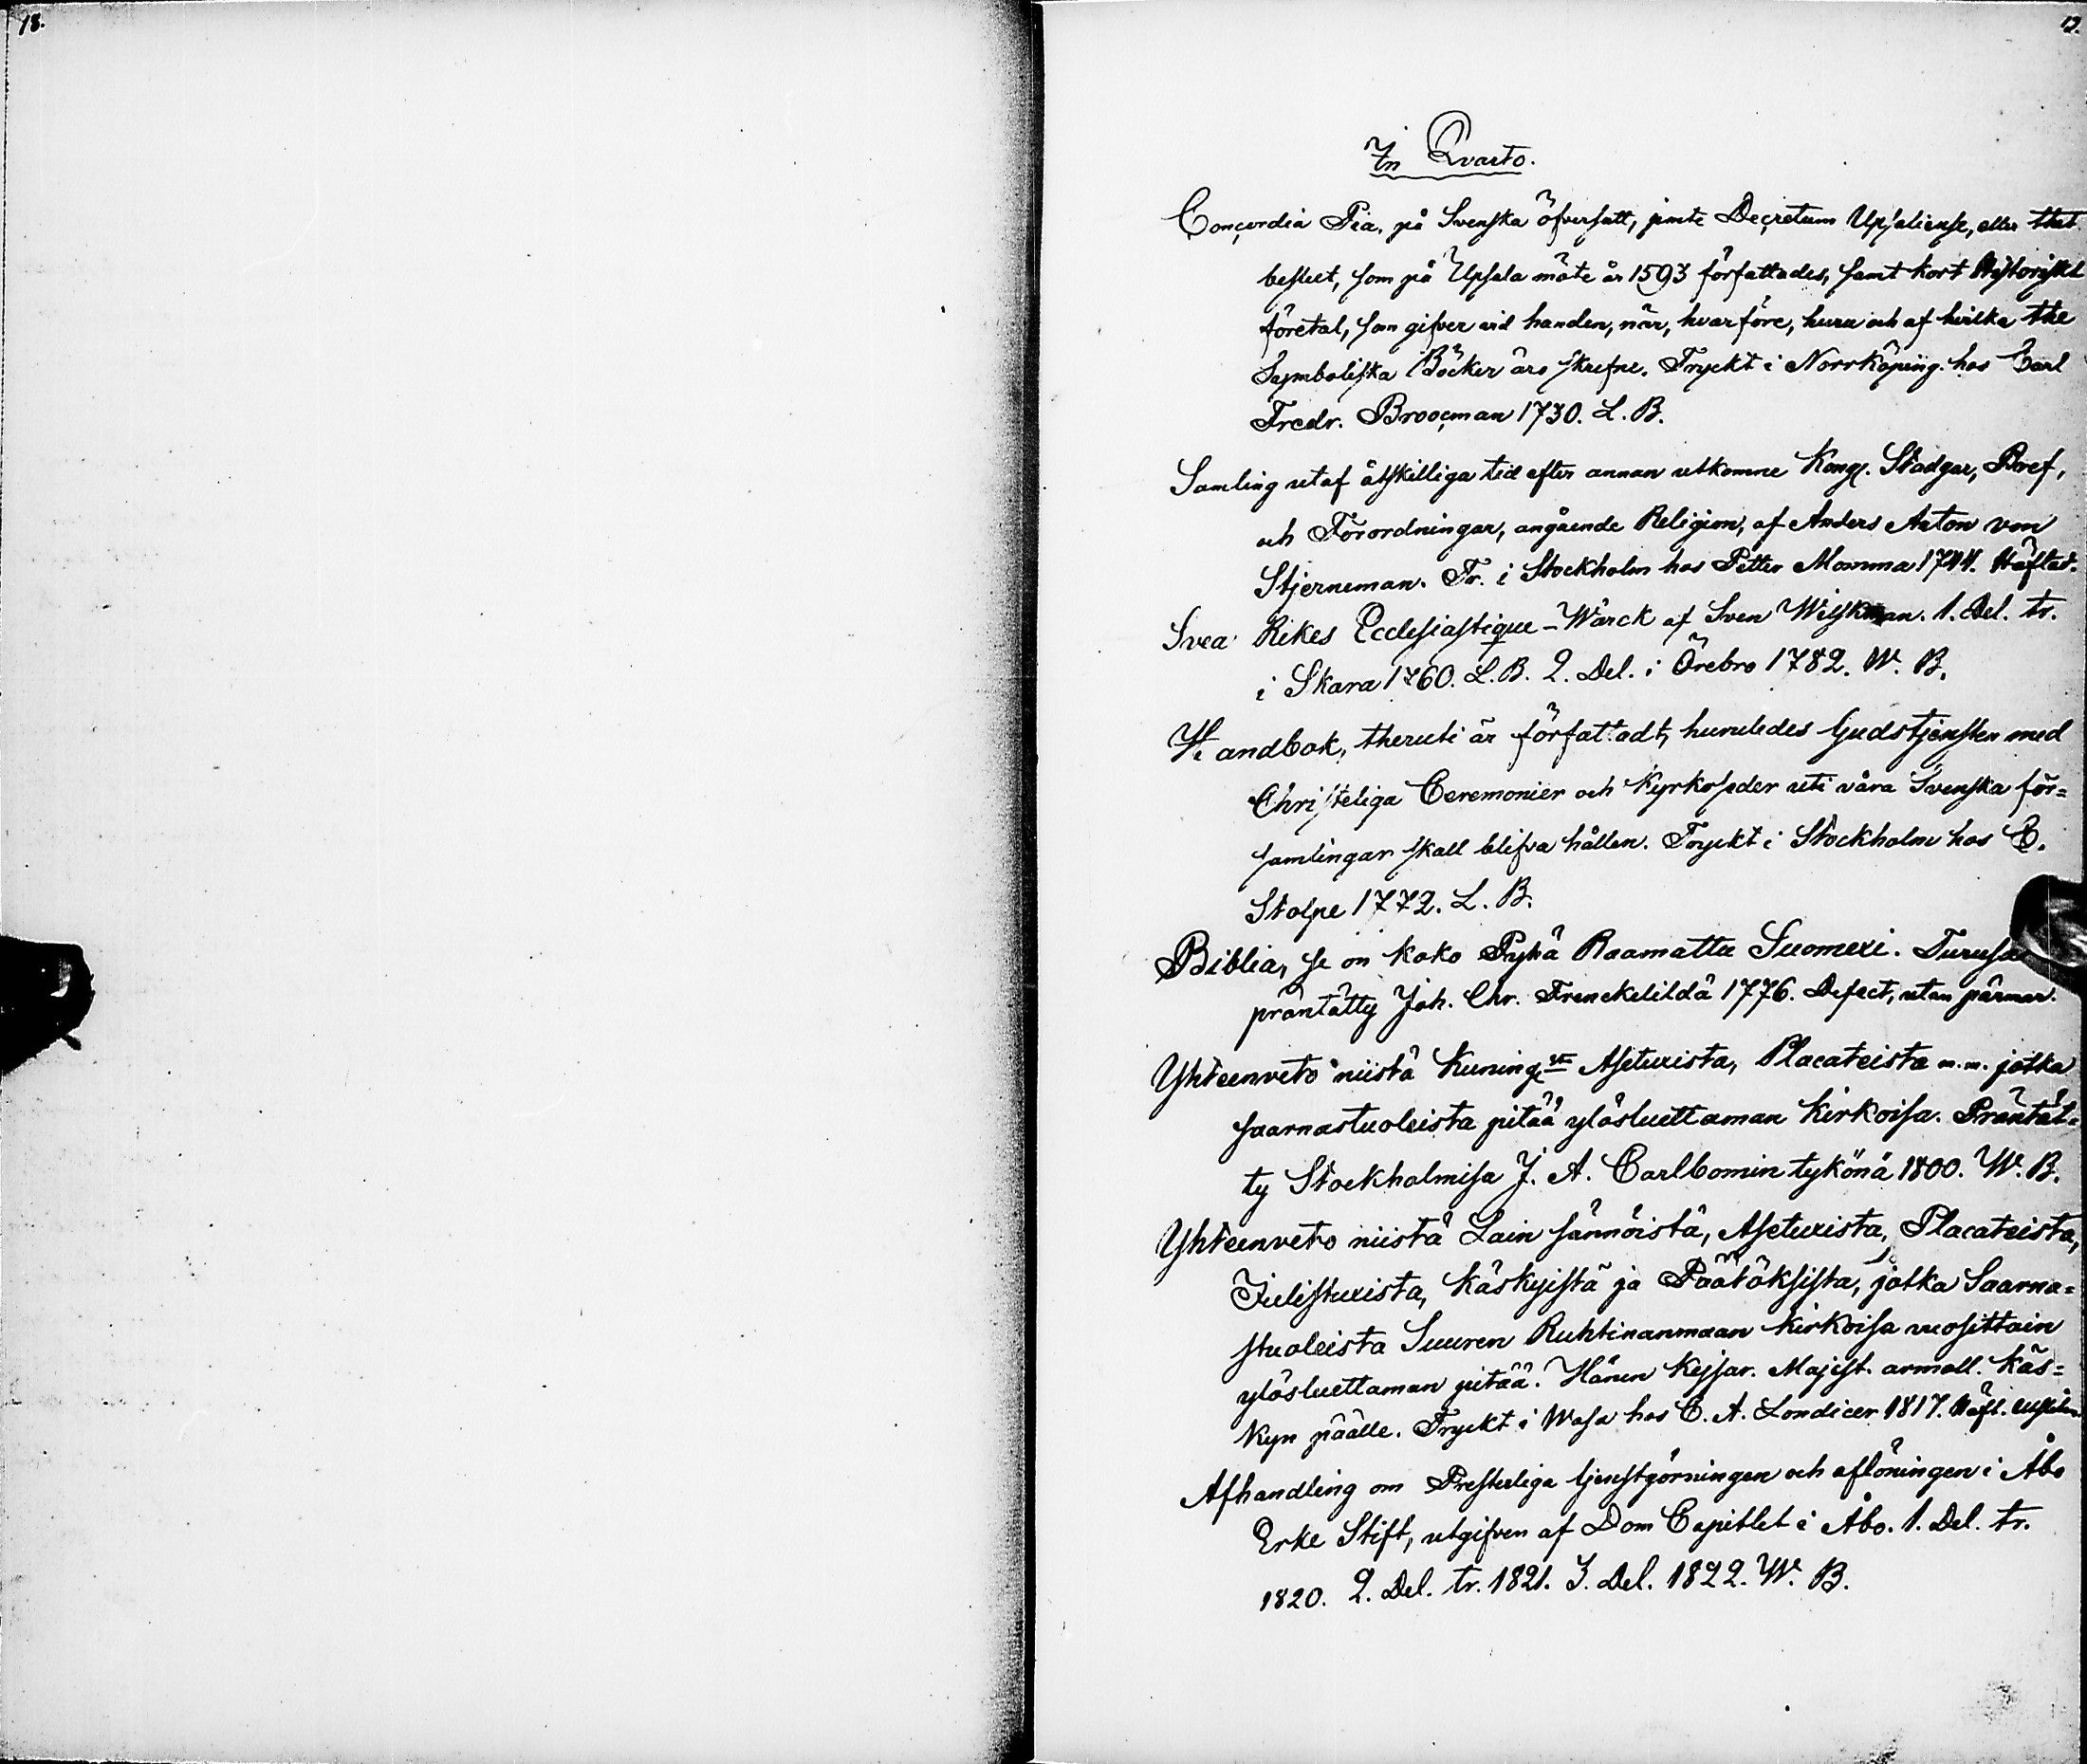 18.
In Qvarto.
Concordia Pia, på Svenska öfversatt, jemte Decretum Upsaliense, eller thet
beslut, som på Upsala möte år 1593 författades, samt kort Historiskt
företal, som gifver vid handen, när, hvarföre, huru och af hvilka the
Symboliska Böcker äro skrefne. Tryckt i Norrköping hos Carl
Fredr. Broocman 1730. L. B.
Samling utaf åtskilliga tid efter annan utkomne Kongl. Stadgar, Bref,
och Förordningar, angående Religion, af Anders Anton von
Stjerneman. Tr. i Stockholm hos Petter Momma 1744. Häftad.
Svea Rikes Ecclesiastique-Wärck af Sven Wilskman. 1. Del. tr.
i Skara 1760. L. B. 2. Del. i Örebro 1782. W. B.
Handbok, theruti är författadt, huruledes Gudstjensten med
Christeliga Ceremonier och Kyrkoseder uti våra Svenska för=
samlingar skall blifva hållen. Tryckt i Stockholm hos C.
Stolpe 1772. L. B.
Biblia, se on koko Pyhä Raamattu Suomexi. Turusa
präntätty Joh. Chr. Frenckelildä 1776. Defect, utan pärmar.
Yhteenveto niistä Kuning. Asetuxista, Placateista m.m. jotka
saarnastuoleista pitää ylösluettaman kirkoisa. Präntät=
ty Stockholmisa J. A. Carlbomin tykönä 1800. W. B.
Yhteenveto niistä Lain sännöistä, Asetuxista, Placateista,
Julistuxista, käskyistä ja Päätöksista, jotka Saarna=
stuoleista Suuren Ruhtinanmaan kirkoisa vuosittain
ylösluettaman pitää. Hänen Kejsar. Majest. armoll. käs=
kyn päälle. Tryckt i Wasa hos C. A. Londicer 1817. Häft.
Afhandling om Presterliga tjenstgörningen och aflöningen i Åbo
Erke Stift, utgifven af Dom Capitlet i Åbo. 1. Del. tr.
1820. 2. Del. tr. 1821. 3. Del. 1822. W. B.